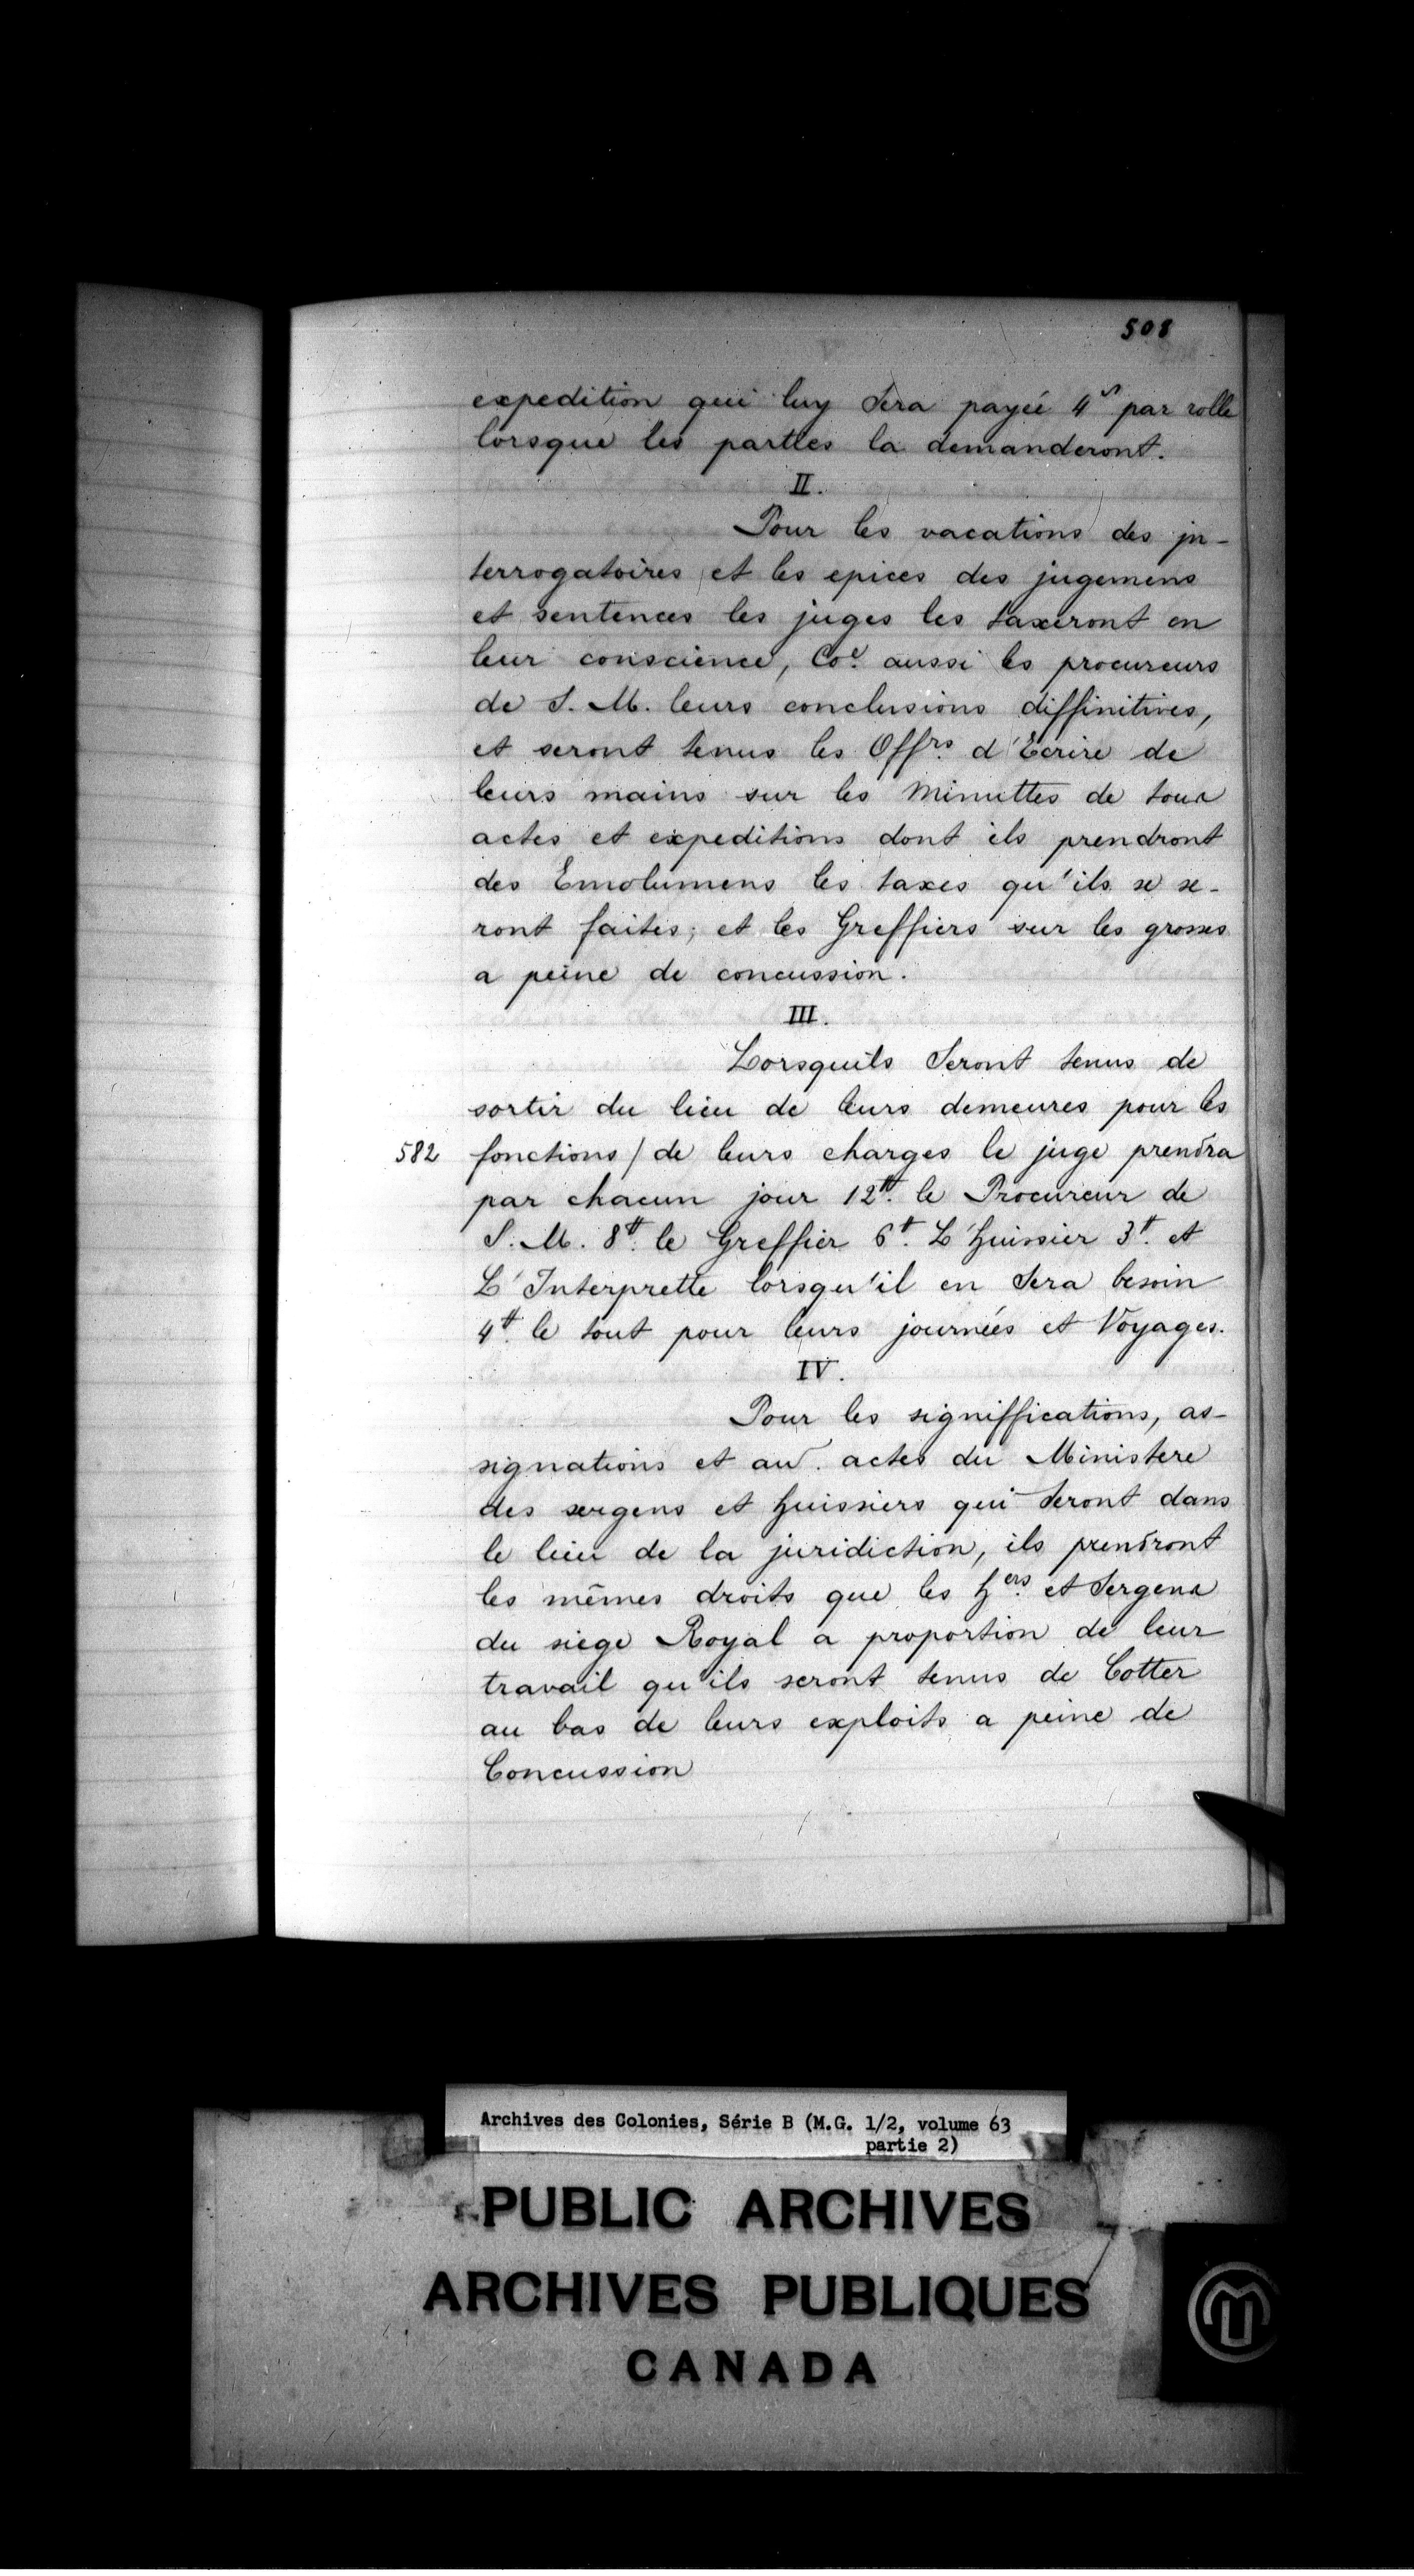 508
expedition qui luy Sera payée 4s par rolle
lorsque les parties la demanderont.
II.
Pour les vacations des in-
terrogatoires et les epices des jugemens
et sentences les juges les taxeront en
leur conscience, Coe. aussi les procureurs
de S. M. leurs conclusions diffinitives,
et seront tenus les Offrs. d'Ecrire de
leurs mains sur les Minuttes de tous
actes et expeditions dont ils prendront
des Emolumens les taxes qu'ils se se-
ront faites; et les Greffiers sur les grosses
a peine de concussion.
III.
Lorsquils Seront tenus de
sortir du lieu de leurs demeures pour les
582 fonctions / de leurs charges le juge prendra
par chacun jour 12tt. le Procureur de
S. M. 8tt. le Greffier 6tt. L'huissier 3tt. et
L'Interprette lorsqu'il en Sera besoin
4tt. le tout pour leurs journées et Voyages.
IV.
Pour les signiffications, as-
signations et au. actes du Ministere
des sergens et huissiers qui Seront dans
le lieu de la juridiction, ils prendront
les mêmes droits que les hers. et Sergens
du siege Royal a proportion de leur
travail qu'ils seront tenus de Cotter
au bas de leurs exploits a peine de
Concussion
Archives des Colonies, Série B (M.G. 1/2, volume 63
partie 2)
PUBLIC ARCHIVES
ARCHIVES PUBLIQUES
CANADA